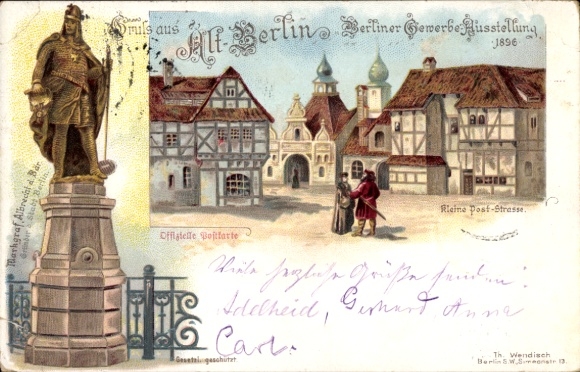 Gruss aus
Alt-Berlin
Berliner Gewerbe-Ausstellung
1896
Markgraf Albrecht d. Bär.
Offizielle Postkarte
Kleine Post-Strasse.
Viele herzliche Grüße senden:
Adelheid, Gerhard, Anna
Carl.
Gesetzl. geschützt
Th. Wendisch
Berlin S.W., Simeonstr. 13.